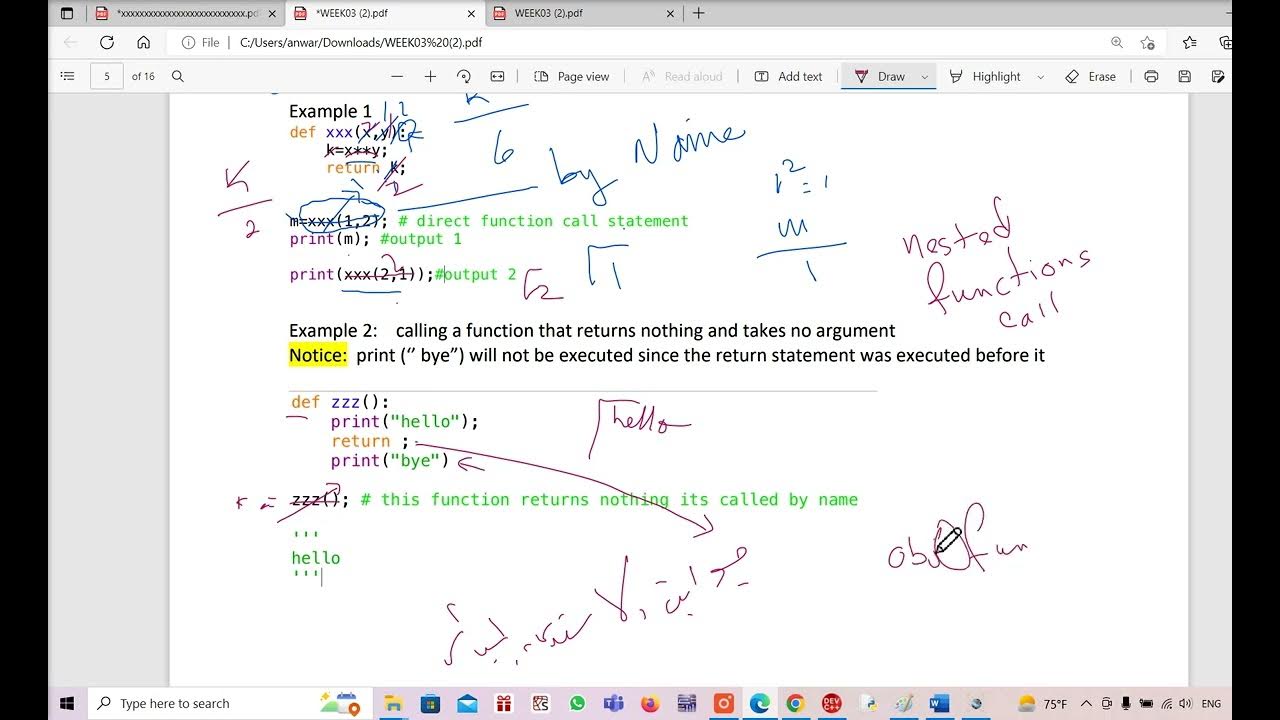 *xxxxxxxxxxxxxxxxxxxxxxxxxxx.pd
*WEEK03 (2).pdf
WEEK03 (2).pdf
File
C:/Users/anwar/Downloads/WEEK03%20(2).pdf
5 of 16
Page view
Read aloud
Add text
Draw
Highlight
Erase
Example 1
1,2
def xxx(x,y):
k=x**y;
return k;
K
6
by Name
K
2
1²=1
m
1
m=xxx(1,2); # direct function call statement
print(m); #output 1
print(xxx(2,1));#output 2
2
1
nested
functions
call
Example 2: calling a function that returns nothing and takes no argument
Notice: print (“ bye”) will not be executed since the return statement was executed before it
def zzz():
print("hello");
return ;
print("bye")
hello
zzz(); # this function returns nothing its called by name
'''
hello
'''
fun
Type here to search
75°F
ENG